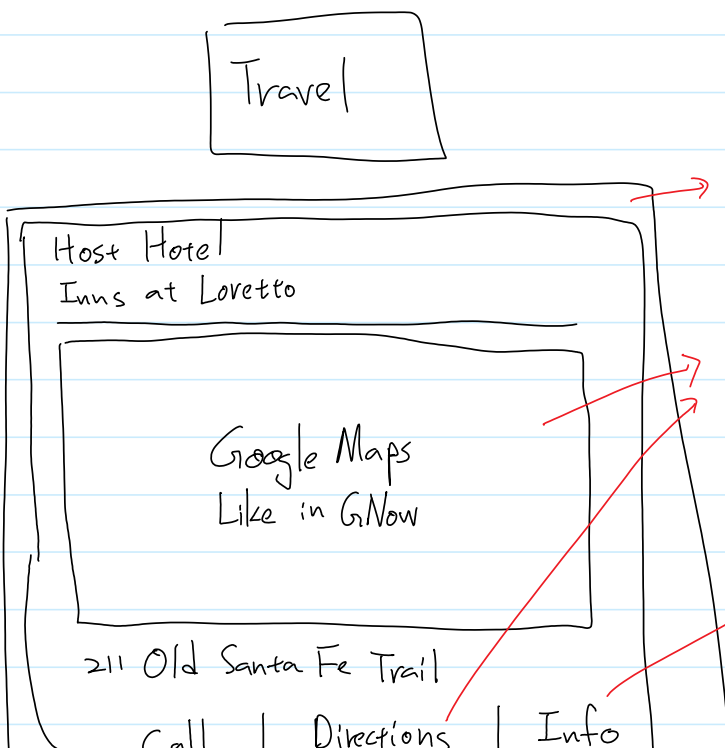 Travel
Host Hotel
Inns at Loretto
Google Maps
Like in GNow
211 Old Santa Fe Trail
Call | Directions | Info